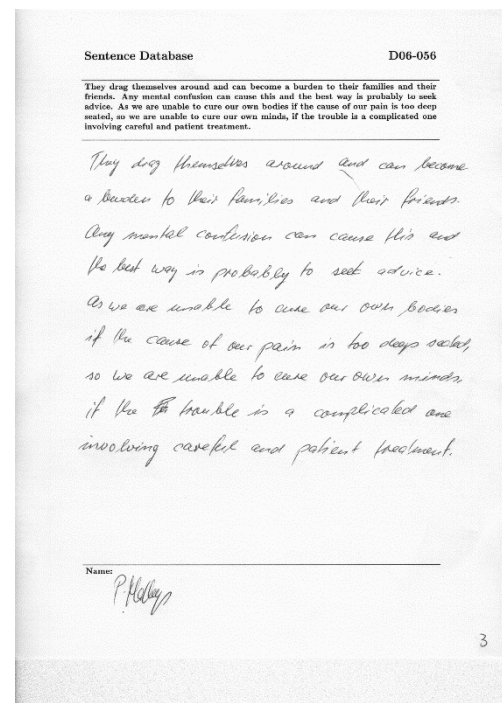 Sentence Database D06-056
They drag themselves around and can become a burden to their families and their
friends. Any mental confusion can cause this and the best way is probably to seek
advice. As we are unable to cure our own bodies if the cause of our pain is too deep
seated, so we are unable to cure our own minds, if the trouble is a complicated one
involving careful and patient treatment.
They drag themselves around and can become
a burden to their families and their friends.
Any mental confusion can cause this and
the best way is probably to seek advice.
As we are unable to cure our own bodies
if the cause of our pain is too deep seated,
so we are unable to cure our own minds,
if the trouble is a complicated one
involving careful and patient treatment.
Name:
3